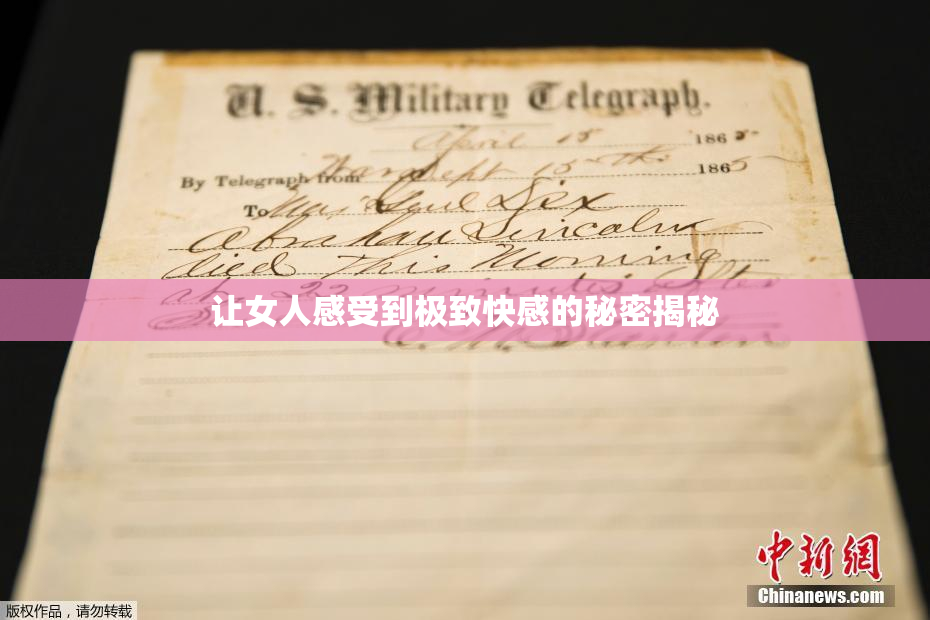 U. S. Military Telegraph.
April 15 1865
By Telegraph from War Dept 15th 1865
To Maj Genl Dix
Abraham Lincoln
died This Morning
at 22 minutes after
让女人感受到极致快感的秘密揭秘
E. M. Stanton
中新网
Chinanews.com
版权作品，请勿转载